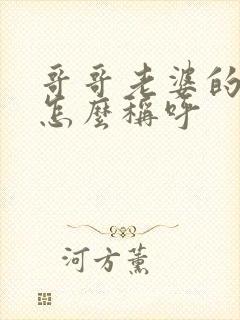 哥哥老婆的
怎麼稱呼
河方薰